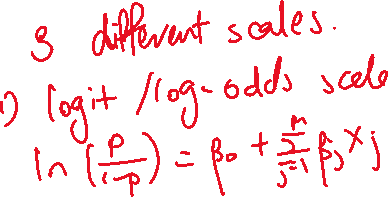 3 different scales.
1) logit / log-odds scale
ln (p/(1-p)) = β₀ + Σⱼ₌₁ⁿ βⱼ xⱼ